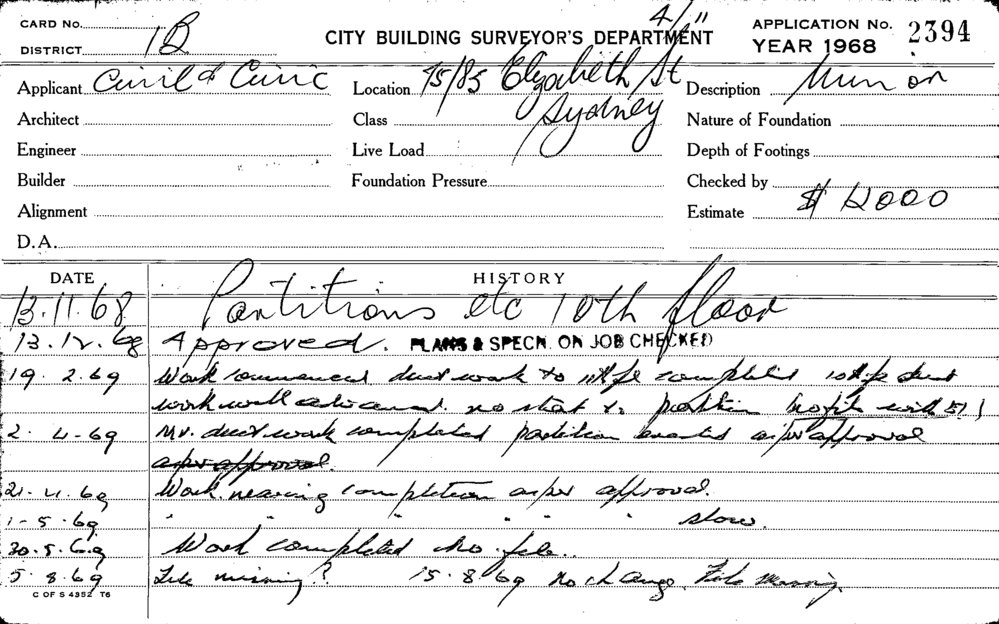 CARD No.
4/11
APPLICATION No. 2394
DISTRICT 1B
CITY BUILDING SURVEYOR'S DEPARTMENT
YEAR 1968
Applicant Civil & Civic
Location 75/85 Elizabeth St Sydney
Description
Architect
Class
Nature of Foundation
Engineer
Live Load
Depth of Footings
Builder
Foundation Pressure
Checked by
Alignment
Estimate $ 12000
D.A.
DATE
HISTORY
13.11.68 Partitions etc 10th floor
13.12.68 Approved. PLANS & SPECN. ON JOB CHECKED
19.2.69 Work commenced duct work to 11th fl completed 10th fl duct
work well advanced. no start to partition
2.4.69 duct work completed partition erected as per approval
as per approval.
21.4.69 Work nearing completion as per approval.
1-5.69 " " " " " " slow.
30.5.69 Work completed no file.
5.8.69 File missing? 15.8.69 no change. File missing
C OF S 4352 T6